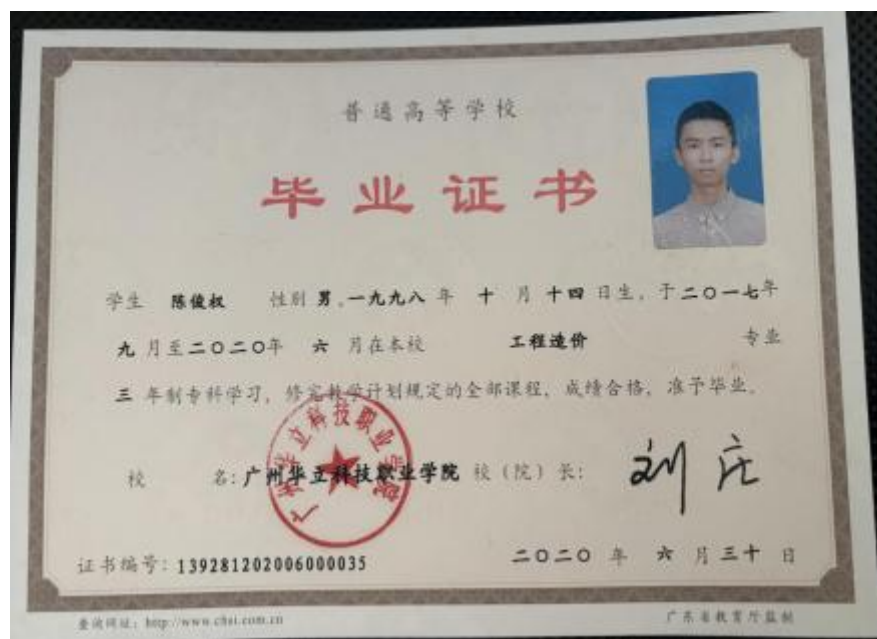 普通高等学校
毕业证书
学生 陈俊权 性别 男，一九九八 年 十 月 十四 日生，于二〇一七年
九 月至二〇二〇年 六 月在本校 工程造价 专业
三 年制专科学习，修完教学计划规定的全部课程，成绩合格，准予毕业。
广州华立科技职业学院
校 名：广州华立科技职业学院 校（院）长： 刘庄
证书编号：139281202006000035 二〇二〇 年 六 月三十 日
查询网址：http://www.chsi.com.cn 广东省教育厅监制